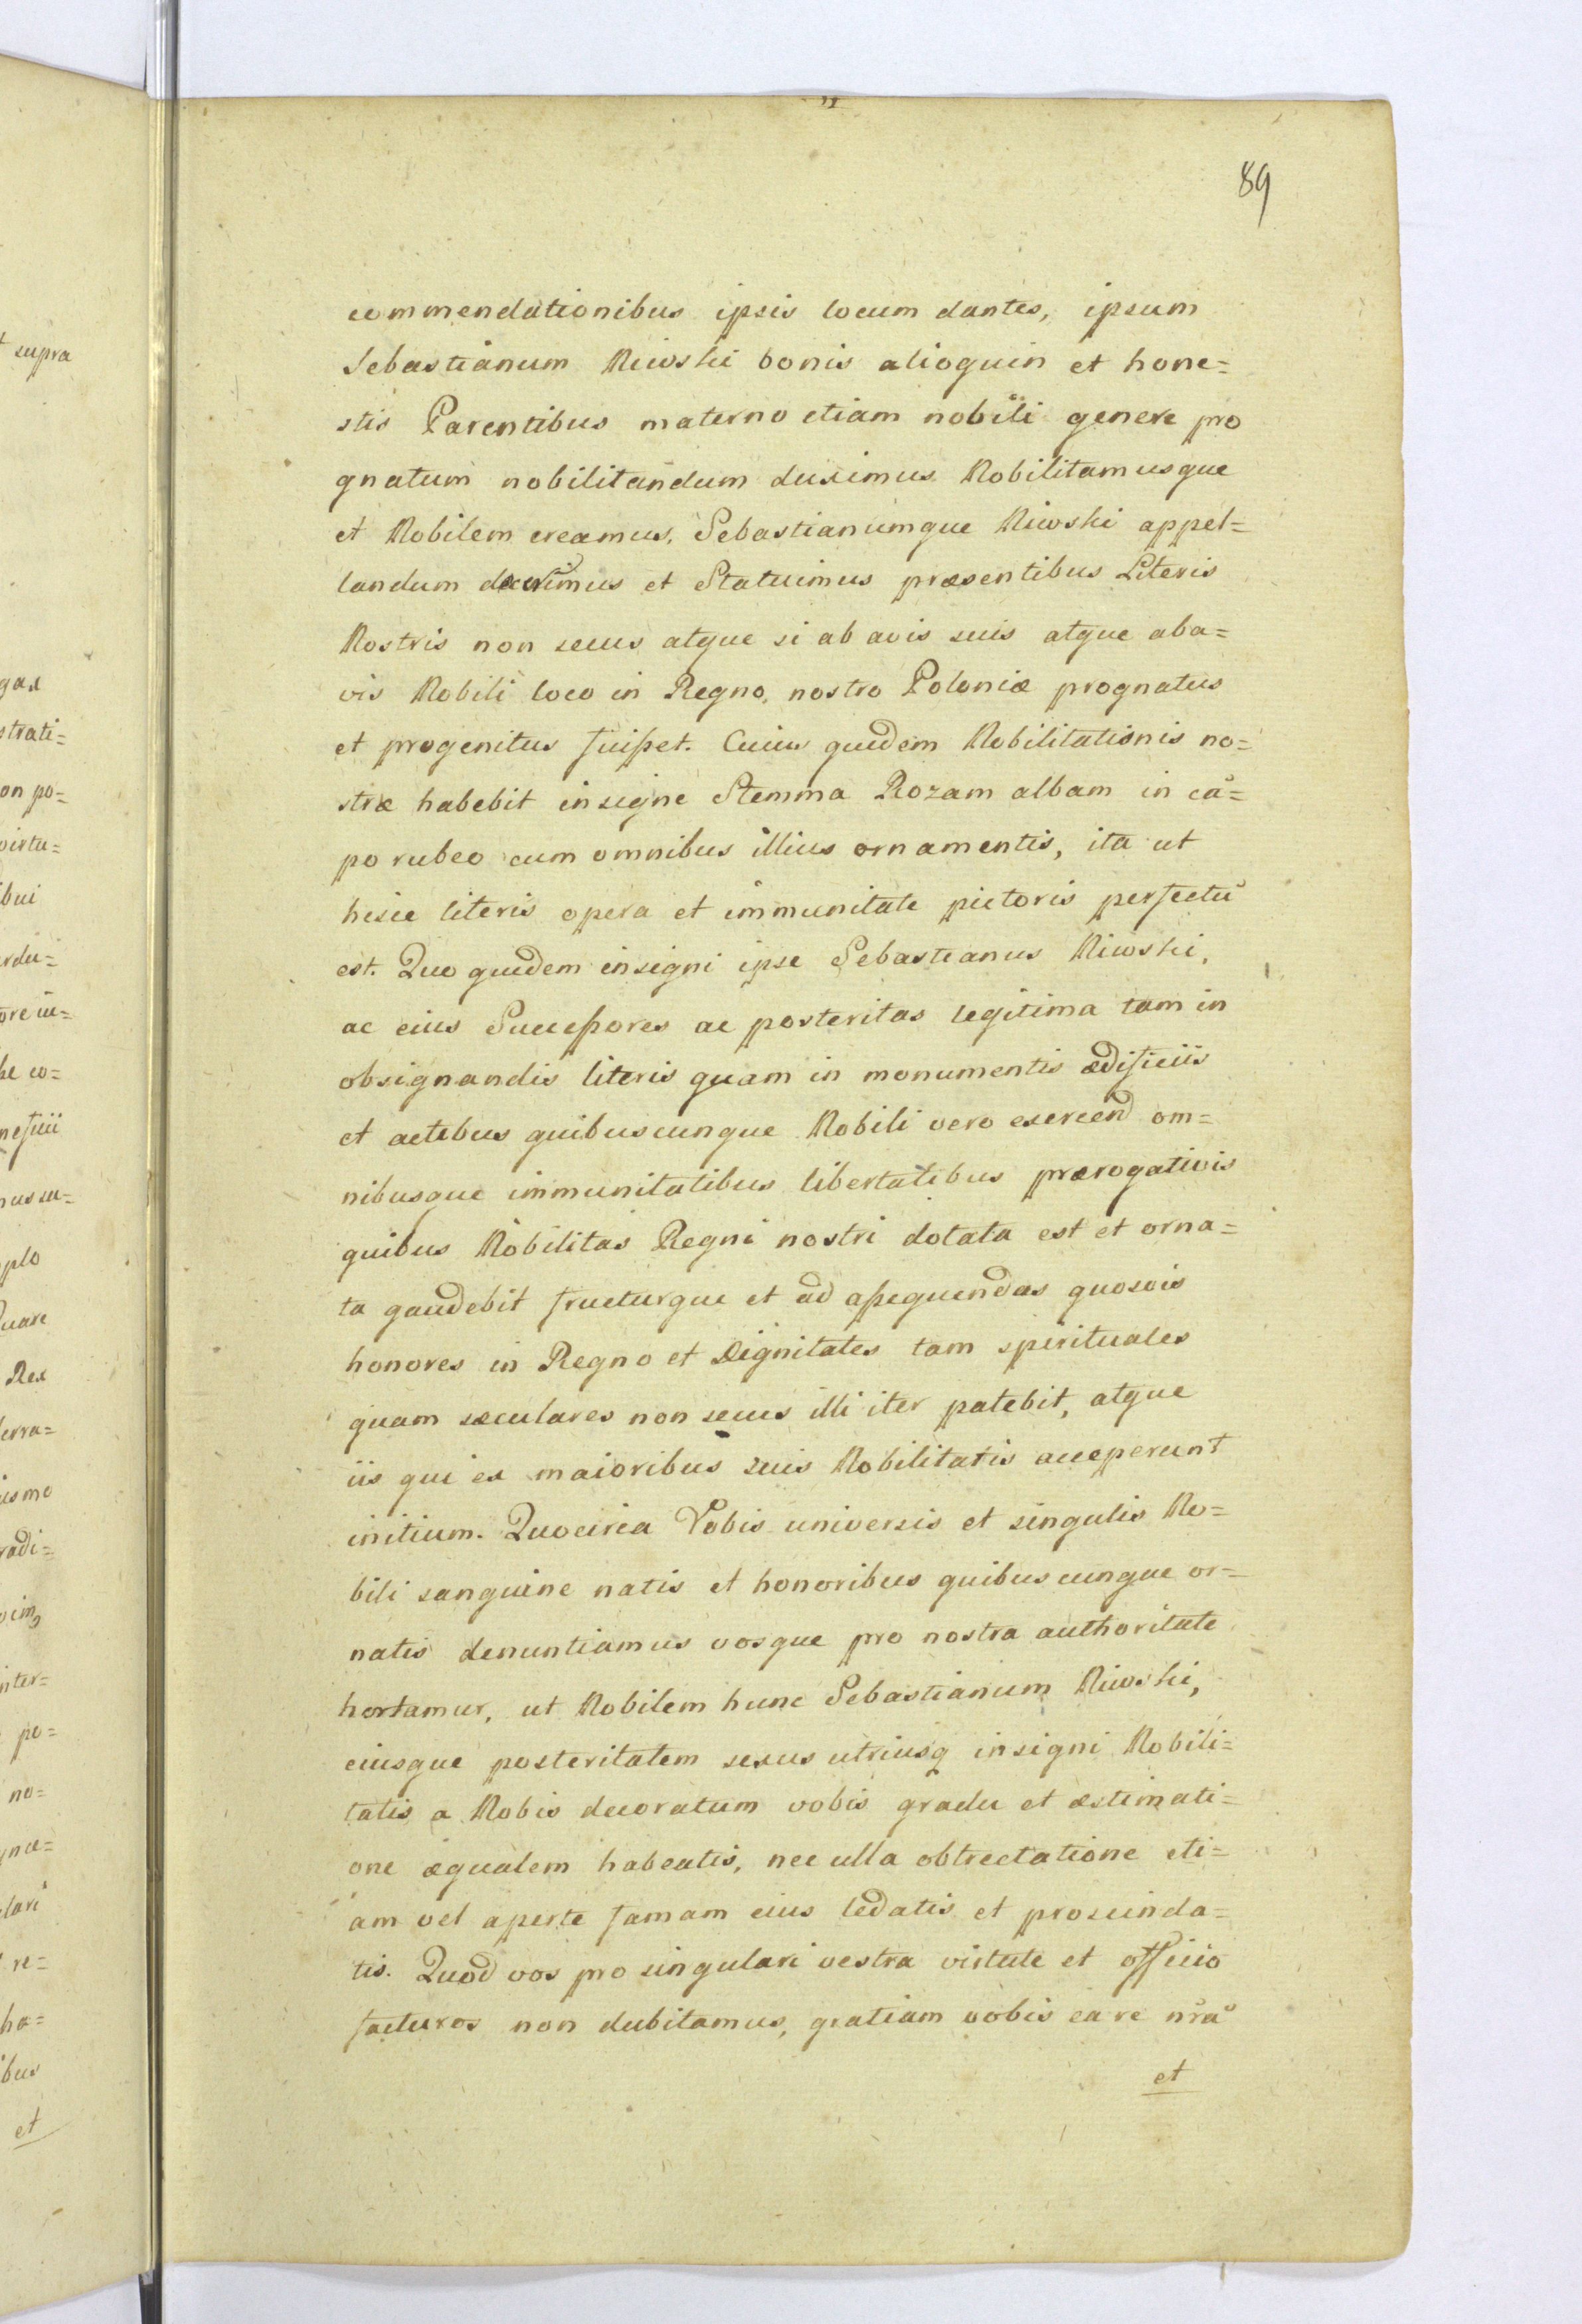 89
commendationibus ipsis locum dantes, ipsum
Sebastianum Niwski bonis alioquin et hone=
stis Parentibus materno etiam nobili genere pro
gnatum nobilitandum duximus Nobilitamusque
et Nobilem creamus, Sebastianumque Niwski appel=
landum et Statuimus præsentibus Literis
Nostris non secus atque si ab avis suis atque aba=
vis Nobili loco in Regno, nostro Poloniæ prognatus
et progenitus fuisset. Cuius quidem Nobilitationis no=
stræ habebit insigne Stemma Rozam albam in cā=
po rubeo cum omnibus illius ornamentis, ita ut
hisce literis opera et immunitate pictoris perfectū
est. Quo quidem insigni ipse Sebastianus Niwski,
ac eius Successores ac posteritas legitima tam in
obsignandis literis quam in monumentis ædificiis
et actibus quibuscunque Nobili vero exercend om=
nibusque immunitatibus libertatibus prærogativis
quibus Nobilitas Regni nostri dotata est et orna=
ta gaudebit frueturque et ad assequendas quosvis
honores in Regno et Dignitates tam spirituales
quam sæculares non secus illi iter patebit, atque
iis qui ex maioribus suis Nobilitatis acceperunt
initium. Quocirca Vobis universis et singulis No=
bili sanguine natis et honoribus quibuscunque or=
natis denuntiamus vosque pro nostra authoritate
hortamur, ut Nobilem hunc Sebastianum Niwski,
eiusque posteritatem sexus utriusq insigni Nobili=
tatis a Nobis decoratum vobis gradu et æstimati=
one æqualem habeatis, nec ulla obtrectatione eti=
am vel aperte famam eius ledatis et proscinda=
tis. Quod vos pro singulari vestra virtute et officio
facturos non dubitamus, gratiam vobis ea re nrā
et
supra